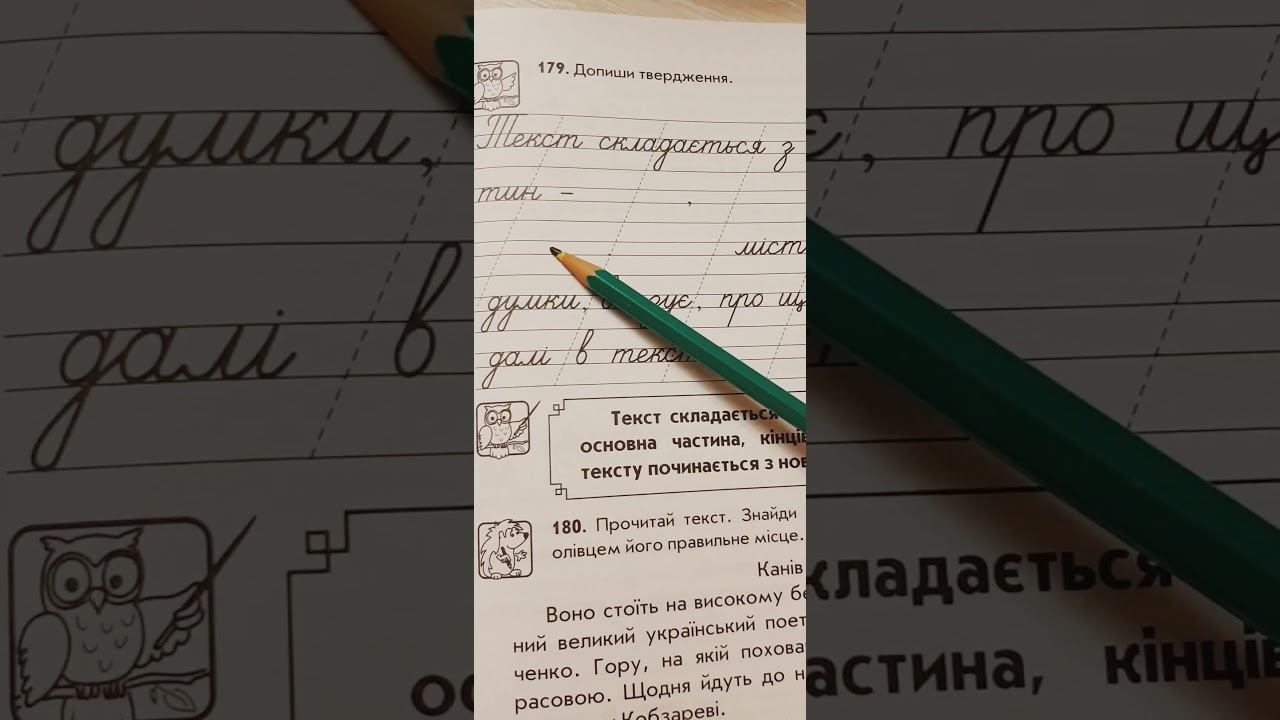 179. Допиши твердження.
Текст складається з
тин – ,
міст
думки, є, про щ
далі в текст
Текст складається
основна частина, кінців
тексту починається з нов
180. Прочитай текст. Знайди
олівцем його правильне місце.
Канів
Воно стоїть на високому бе
ний великий український поет
ченко. Гору, на якій похова
расовою. Щодня йдуть до н
Кобзареві.